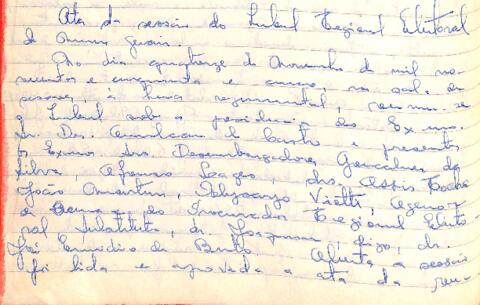 Ata da sessão do Tribunal Regional Eleitoral
de Minas Gerais.
No dia quatorze de novembro de mil no-
vecentos e cinquenta e cinco, na sala de
sessões, à hora regimental, reuniu-se
o Tribunal sob a presidência do Exmo.
Sr. Des. e presentes
os Exmos. Srs. Desembargadores Gonçalves da
Silva, Afonso Lages, drs. Assis Rocha
João Martins, Vieitti,
de Senna e do Procurador Regional Eleito-
ral Substituto, dr. digo, dr.
José Emidio de Britto. Aberta a sessão
foi lida e aprovada a ata da reu-